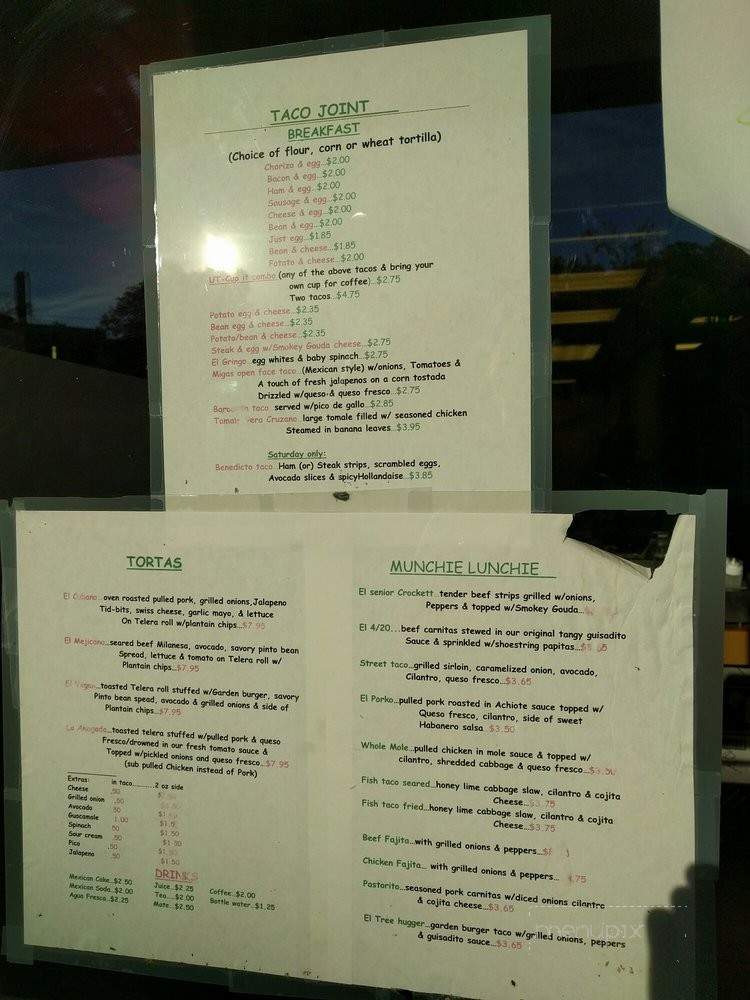 TACO JOINT
BREAKFAST
(Choice of flour, corn or wheat tortilla)
Chorizo & egg...$2.00
Bacon & egg...$2.00
Ham & egg...$2.00
Sausage & egg...$2.00
Cheese & egg...$2.00
Bean & egg...$2.00
Just egg...$1.85
Bean & cheese...$1.85
Potato & cheese...$2.00
UT-Cup it combo (any of the above tacos & bring your
own cup for coffee)...$2.75
Two tacos...$4.75
Potato egg & cheese...$2.35
Bean egg & cheese...$2.35
Potato/bean & cheese...$2.35
Steak & egg w/Smokey Gouda cheese...$2.75
El Gringo...egg whites & baby spinach...$2.75
Migas open face taco...(Mexican style) w/onions, Tomatoes &
A touch of fresh jalapenos on a corn tostada
Drizzled w/queso & queso fresco...$2.75
taco...served w/pico de gallo...$2.85
Cruzano...large tomale filled w/ seasoned chicken
Steamed in banana leaves...$3.95
Saturday only:
Benedicto taco...Ham (or) Steak strips, scrambled eggs,
Avocado slices & spicyHollandaise...$3.85
TORTAS
El Cubano...oven roasted pulled pork, grilled onions,Jalapeno
Tid-bits, swiss cheese, garlic mayo, & lettuce
On Telera roll w/plantain chips...$7.95
El Mejicano...seared beef Milanesa, avocado, savory pinto bean
Spread, lettuce & tomato on Telera roll w/
Plantain chips...$7.95
El Vegan...toasted Telera roll stuffed w/Garden burger, savory
Pinto bean spead, avocado & grilled onions & side of
Plantain chips...$7.95
La Ahogada...toasted telera stuffed w/pulled pork & queso
Fresco/drowned in our fresh tomato sauce &
Topped w/pickled onions and queso fresco...$7.95
(sub pulled Chicken instead of Pork)
Extras: in taco..........2 oz side
Cheese .50
Grilled onion .50
Avocado 50
Guacamole 1.00
Spinach 50 $1.50
Sour cream .50 $1.50
Pico .50
Jalapeno .50 $1.50
DRINKS
Mexican Coke...$2.50 Juice...$2.25 Coffee...$2.00
Mexican Soda...$2.00 Tea....$2.00 Bottle water...$1.25
Agua Fresca...$2.25 Mate...$2.50
MUNCHIE LUNCHIE
El senior Crockett...tender beef strips grilled w/onions,
Peppers & topped w/Smokey Gouda...
El 4/20...beef carnitas stewed in our original tangy guisadito
Sauce & sprinkled w/shoestring papitas...
Street taco...grilled sirloin, caramelized onion, avocado,
Cilantro, queso fresco...$3.65
El Porko...pulled pork roasted in Achiote sauce topped w/
Queso fresco, cilantro, side of sweet
Habanero salsa $3.50
Whole Mole...pulled chicken in mole sauce & topped w/
cilantro, shredded cabbage & queso fresco...$3.50
Fish taco seared...honey lime cabbage slaw, cilantro & cojita
Cheese...$3.75
Fish taco fried...honey lime cabbage slaw, cilantro & cojita
Cheese...$3.75
Beef Fajita...with grilled onions & peppers...
Chicken Fajita... with grilled onions & peppers...
Pastorito...seasoned pork carnitas w/diced onions cilantro
& cojita cheese...$3.65
El Tree hugger...garden burger taco w/grilled onions, peppers
& guisadito sauce...$3.65
menupix